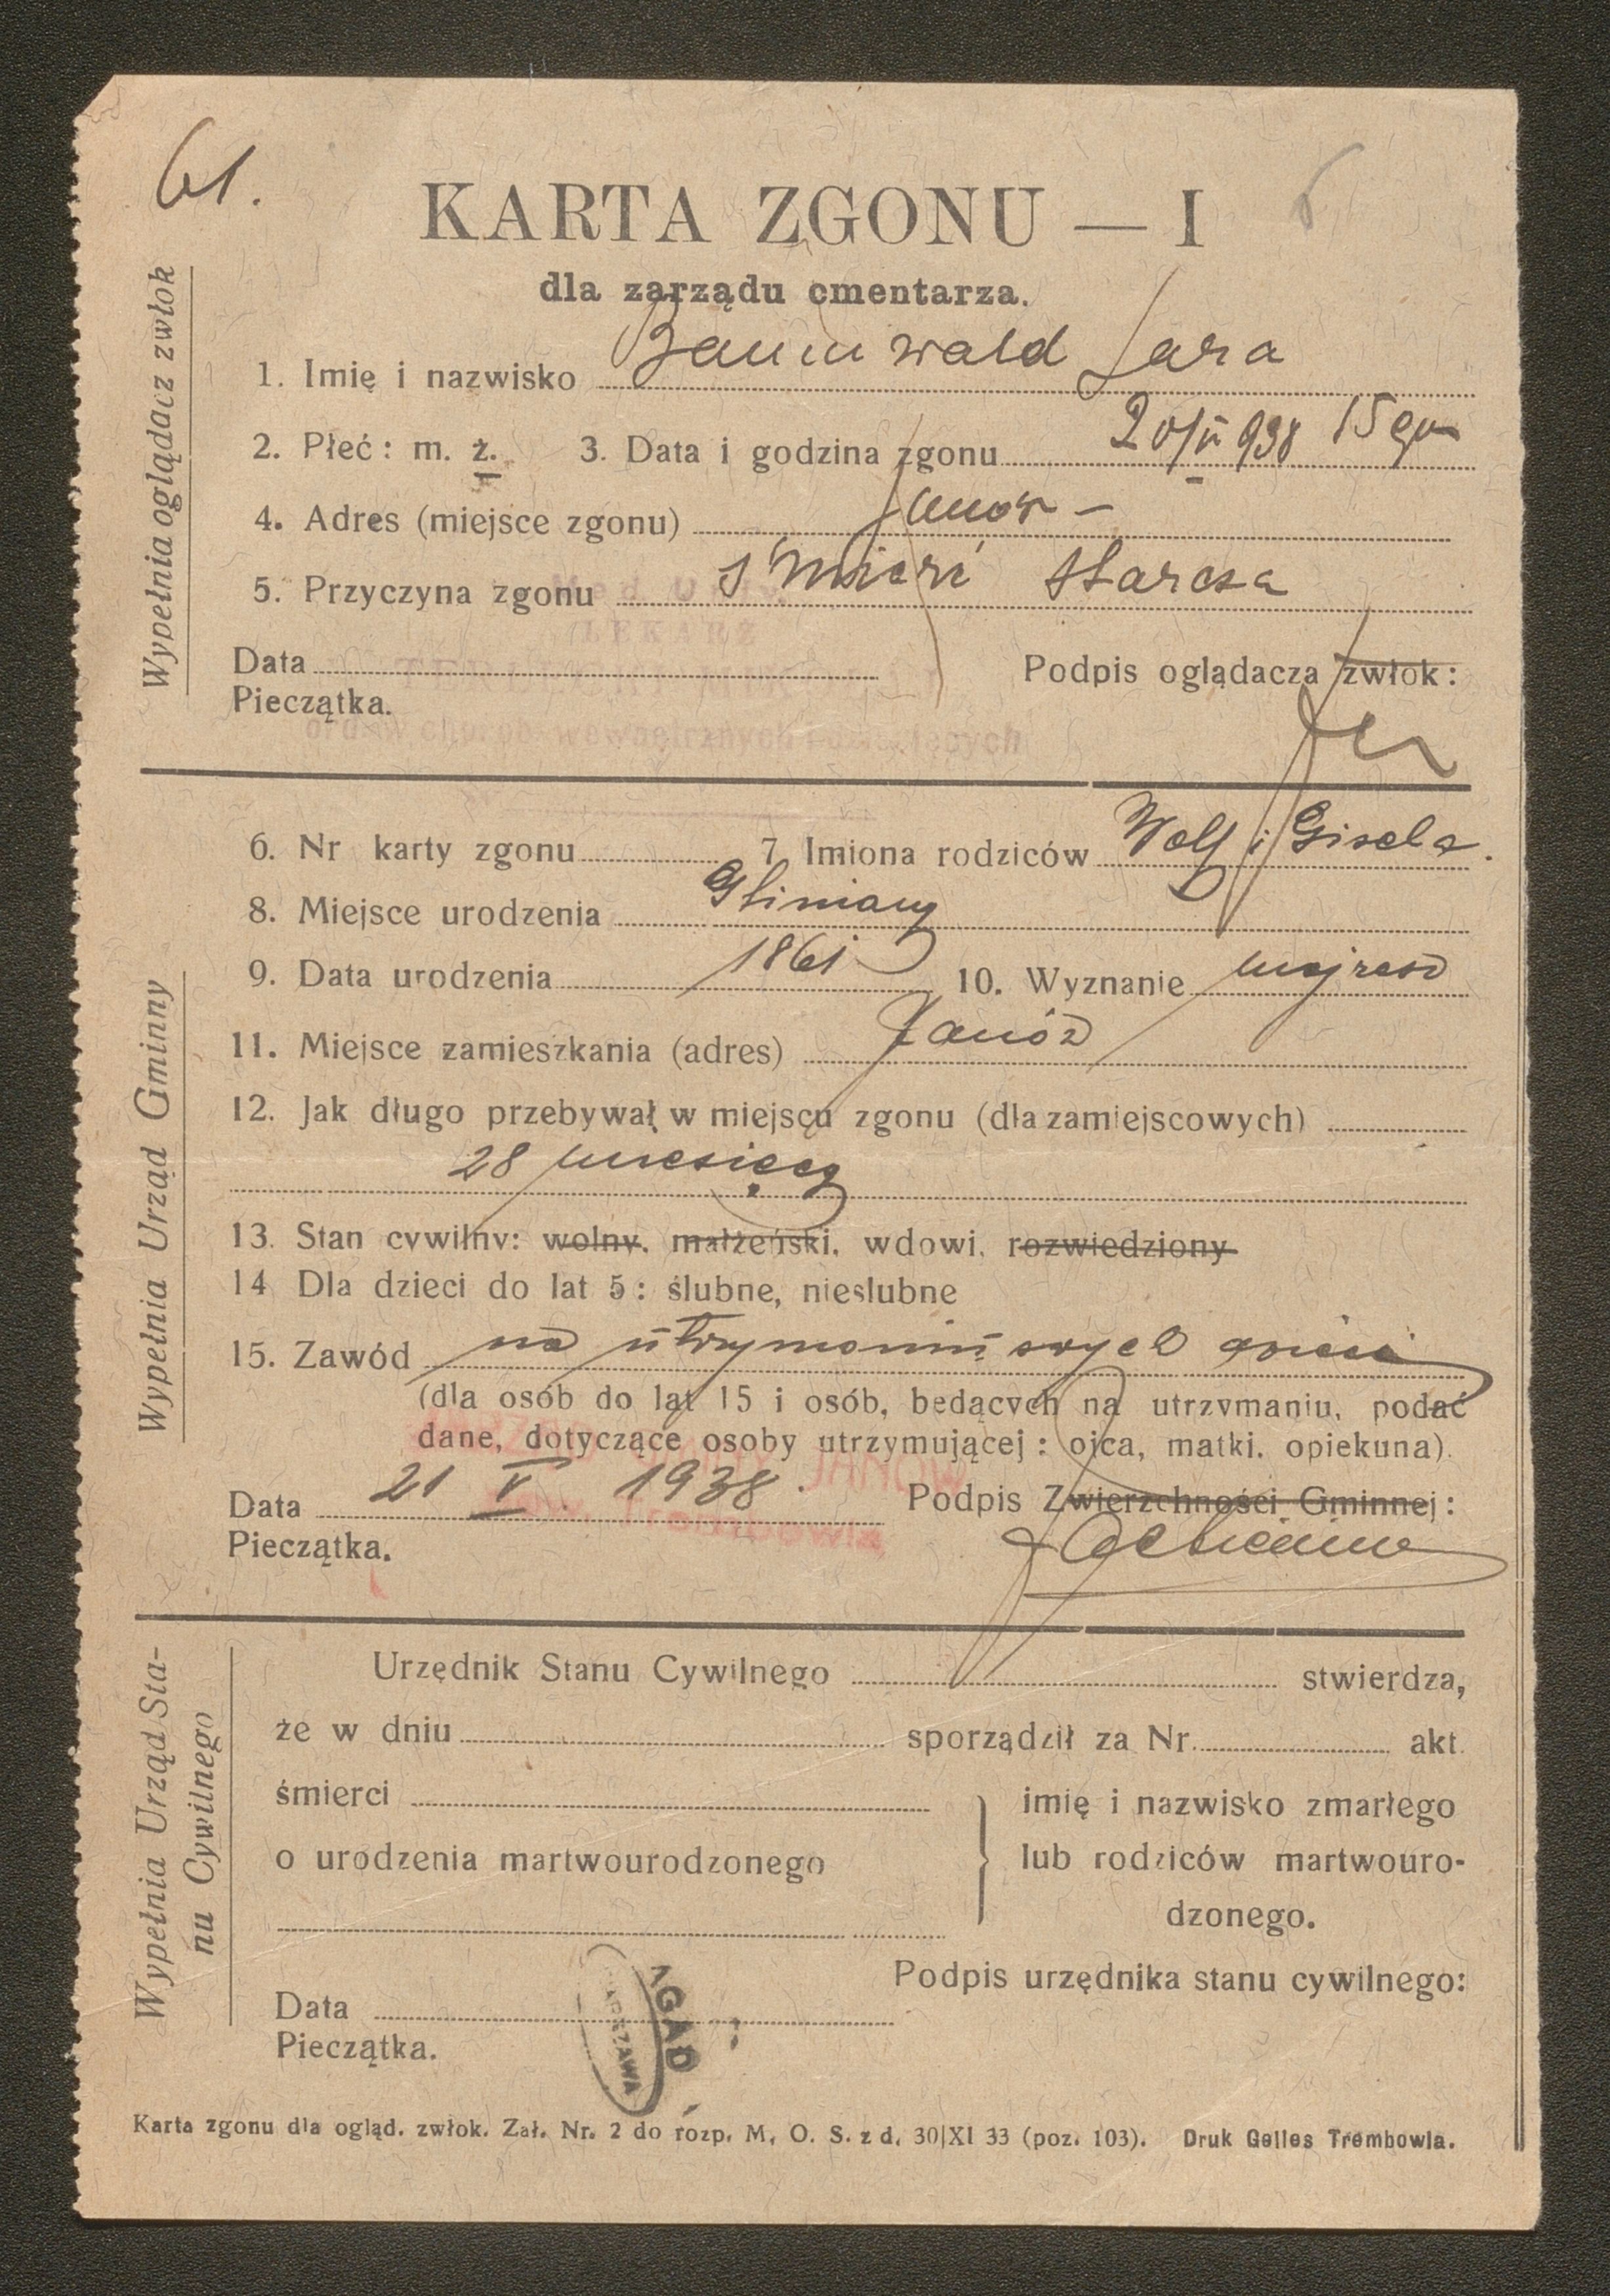 61.
KARTA ZGONU — I
dla zarządu cmentarza.
Wypełnia oglądacz zwłok
1. Imię i nazwisko Baumwald Sara
2. Płeć: m. ż. 3. Data i godzina zgonu 20/V 938 15
4. Adres (miejsce zgonu) Janów –
5. Przyczyna zgonu śmierć starcza
LEKARZ
Data Podpis oglądacza zwłok:
Pieczątka.
ord. w chorob. wewnętrznych i dziecięcych
Wypełnia Urząd Gminny
6. Nr karty zgonu 7 Imiona rodziców Wolf i Gisela.
8. Miejsce urodzenia Gliniany
9. Data urodzenia 1861 10. Wyznanie mojżesz
11. Miejsce zamieszkania (adres) Janów
12. Jak długo przebywał w miejscu zgonu (dla zamiejscowych)
28 miesięcy
13. Stan cywilny: wolny, małżeński, wdowi, rozwiedziony
14 Dla dzieci do lat 5: ślubne, nieslubne
15. Zawód na utrzymaniu swych dzieci
(dla osób do lat 15 i osób, będących na utrzymaniu, podać
dane, dotyczące osoby utrzymującej: ojca, matki, opiekuna).
JANÓW
Data 21 V. 1938. Podpis Zwierzchności Gminnej:
pow. Trembowla
Pieczątka.
Wypełnia Urząd Sta-
nu Cywilnego
Urzędnik Stanu Cywilnego stwierdza,
że w dniu sporządził za Nr. akt
śmierci imię i nazwisko zmarłego
o urodzenia martwourodzonego lub rodziców martwouro-
dzonego.
Podpis urzędnika stanu cywilnego:
Data
Pieczątka.
AGAD
WARSZAWA
Karta zgonu dla ogląd. zwłok. Zał. Nr. 2 do rozp. M. O. S. z d. 30|XI 33 (poz. 103). Druk Gelles Trembowla.